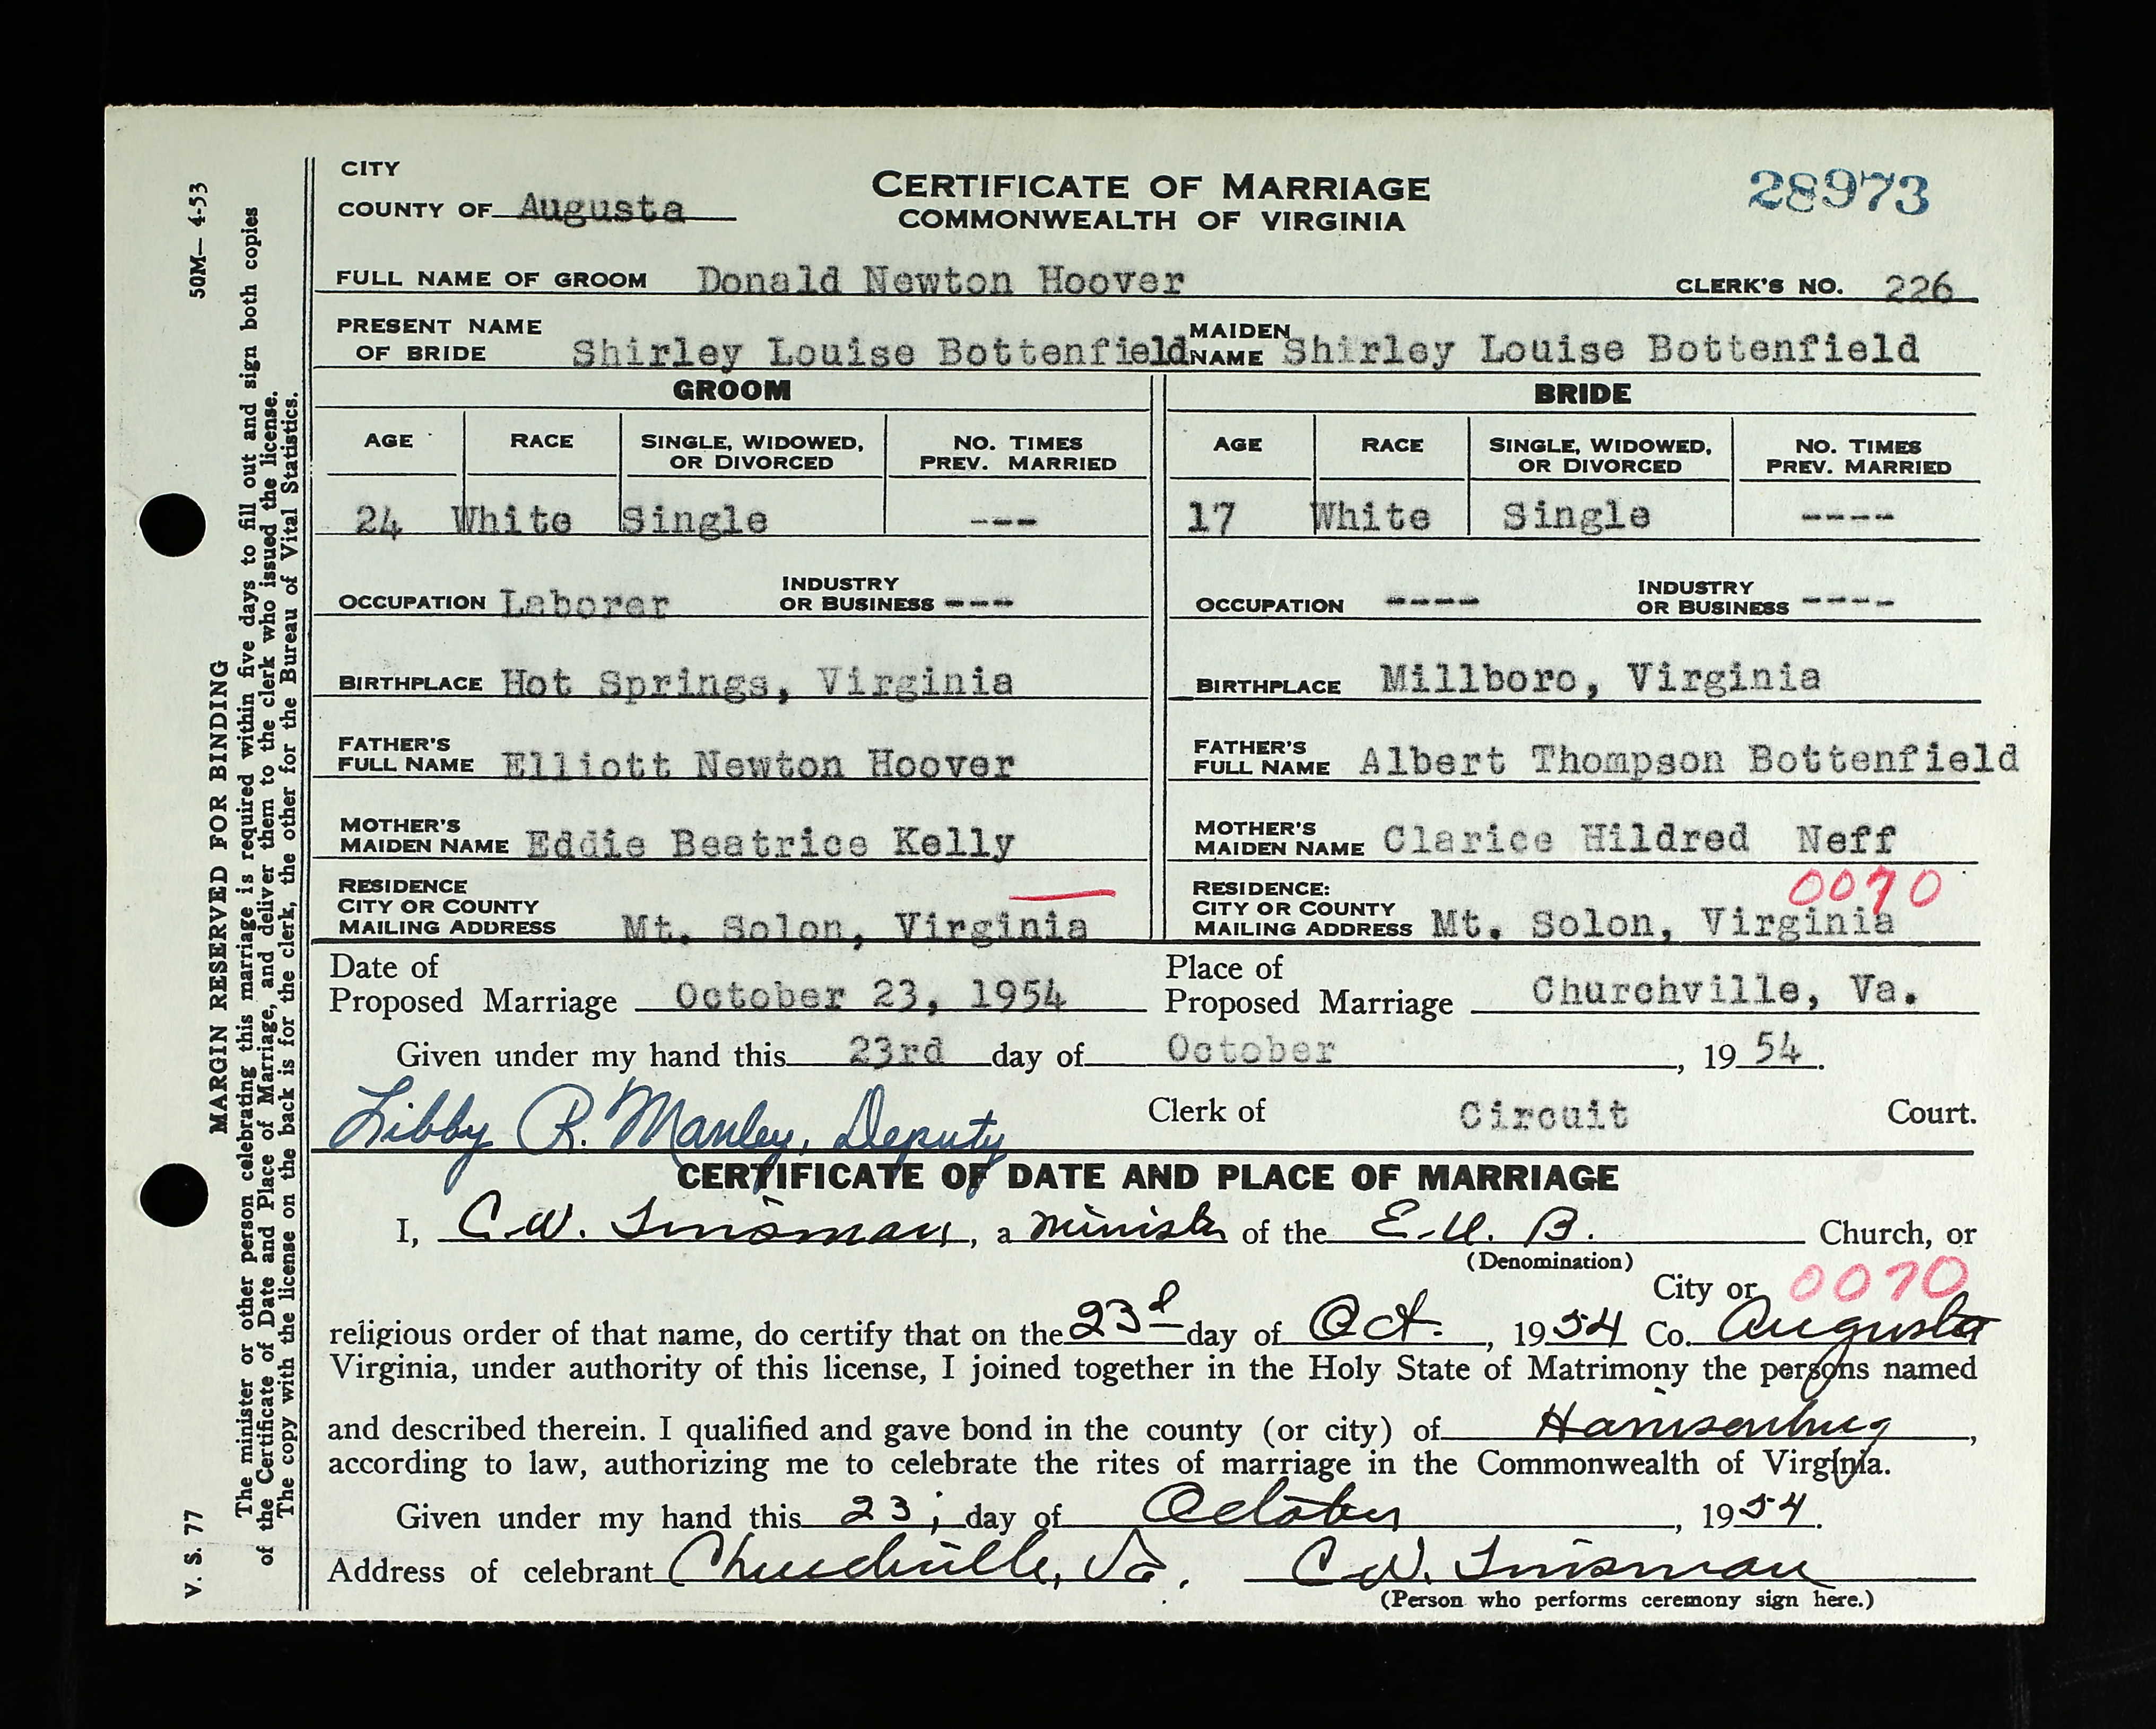 CITY
COUNTY OF Augusta
CERTIFICATE OF MARRIAGE
COMMONWEALTH OF VIRGINIA
28973
FULL NAME OF GROOM Donald Newton Hoover CLERK'S NO. 226
PRESENT NAME OF BRIDE Shirley Louise Bottenfield MAIDEN NAME Shirley Louise Bottenfield
GROOM BRIDE
AGE RACE SINGLE, WIDOWED, OR DIVORCED NO. TIMES PREV. MARRIED AGE RACE SINGLE, WIDOWED, OR DIVORCED NO. TIMES PREV. MARRIED
24 White Single --- 17 White Single ----
OCCUPATION Laborer INDUSTRY OR BUSINESS --- OCCUPATION ---- INDUSTRY OR BUSINESS ----
BIRTHPLACE Hot Springs, Virginia BIRTHPLACE Millboro, Virginia
FATHER'S FULL NAME Elliott Newton Hoover FATHER'S FULL NAME Albert Thompson Bottenfield
MOTHER'S MAIDEN NAME Eddie Beatrice Kelly MOTHER'S MAIDEN NAME Clarice Hildred Neff
0070
RESIDENCE CITY OR COUNTY MAILING ADDRESS Mt. Solon, Virginia RESIDENCE: CITY OR COUNTY MAILING ADDRESS Mt. Solon, Virginia
Date of Proposed Marriage October 23, 1954 Place of Proposed Marriage Churchville, Va.
Given under my hand this 23rd day of October, 19 54.
Libby R. Manley, Deputy Clerk of Circuit Court.
CERTIFICATE OF DATE AND PLACE OF MARRIAGE
I, C.W. , a minister of the E.U.B. Church, or
(Denomination)
City or 0070
religious order of that name, do certify that on the 23d day of Oct., 1954 Co. Augusta
Virginia, under authority of this license, I joined together in the Holy State of Matrimony the persons named
and described therein. I qualified and gave bond in the county (or city) of Harrisonburg,
according to law, authorizing me to celebrate the rites of marriage in the Commonwealth of Virginia.
Given under my hand this 23, day of October, 1954.
Address of celebrant Churchville, Va. C W.
(Person who performs ceremony sign here.)
V. S. 77 MARGIN RESERVED FOR BINDING 50M—4-53
The minister or other person celebrating this marriage is required within five days to fill out and sign both copies
of the Certificate of Date and Place of Marriage, and deliver them to the clerk who issued the license.
The copy with the license on the back is for the clerk, the other for the Bureau of Vital Statistics.